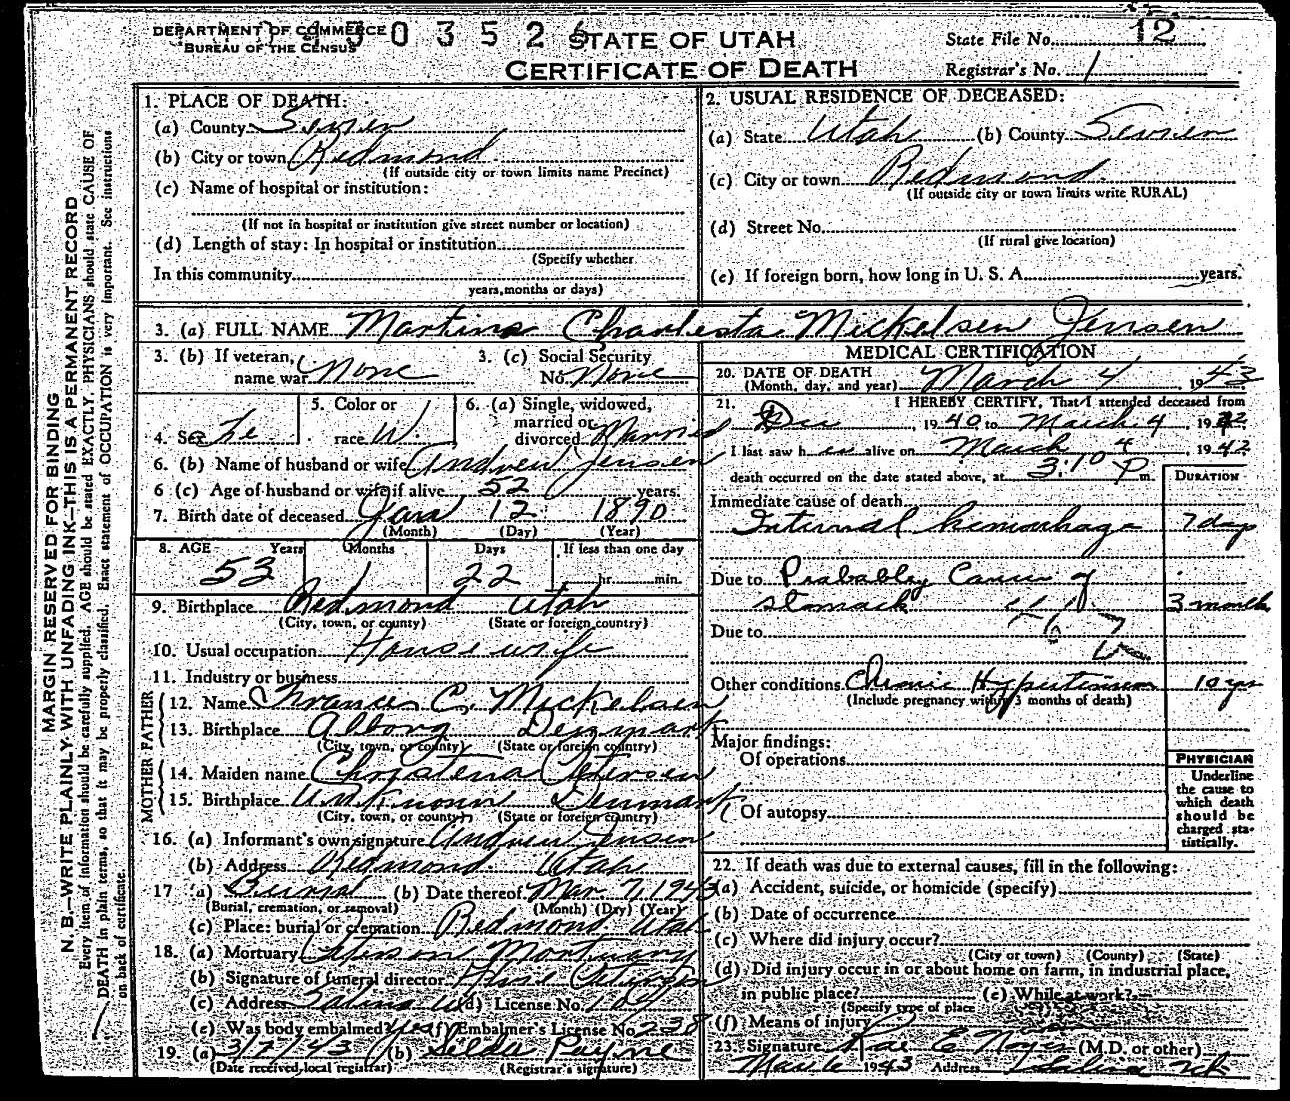 DEPARTMENT OF COMMERCE
BUREAU OF THE CENSUS
30352
STATE OF UTAH
CERTIFICATE OF DEATH
State File No. 12
Registrar's No. 1
MARGIN RESERVED FOR BINDING
N. B.—WRITE PLAINLY WITH UNFADING INK—THIS IS A PERMANENT RECORD
Every item of information should be carefully supplied. AGE should be stated EXACTLY. PHYSICIANS should state CAUSE OF
DEATH in plain terms, so that it may be properly classified. Exact statement of OCCUPATION is very important. See instructions
on back of certificate.
1. PLACE OF DEATH:
(a) County Sevier
(b) City or town Redmond
(If outside city or town limits name Precinct)
(c) Name of hospital or institution:
(If not in hospital or institution give street number or location)
(d) Length of stay: In hospital or institution
(Specify whether
In this community
years, months or days)
2. USUAL RESIDENCE OF DECEASED:
(a) State Utah (b) County Sevier
(c) City or town Redmond
(If outside city or town limits write RURAL)
(d) Street No.
(If rural give location)
(e) If foreign born, how long in U. S. A. years.
3. (a) FULL NAME Martina Charlesta Mickelsen Jensen
3. (b) If veteran, name war None
3. (c) Social Security No. None
4. Sex Fe
5. Color or race W.
6. (a) Single, widowed, married or divorced Married
6. (b) Name of husband or wife Andrew Jensen
6 (c) Age of husband or wife if alive 52 years.
7. Birth date of deceased Jan 12 1890
(Month) (Day) (Year)
8. AGE Years Months Days If less than one day
53 1 22 hr. min.
9. Birthplace Redmond Utah
(City, town, or county) (State or foreign country)
10. Usual occupation Housewife
11. Industry or business
FATHER
12. Name Francis C. Mickelsen
13. Birthplace Alborg Denmark
(City, town, or county) (State or foreign country)
MOTHER
14. Maiden name Christena Petersen
15. Birthplace Unknown Denmark
(City, town, or county) (State or foreign country)
16. (a) Informant's own signature Andrew Jensen
(b) Address Redmond Utah
17 (a) Burial (b) Date thereof Mar 7, 1943
(Burial, cremation, or removal) (Month) (Day) (Year)
(c) Place: burial or cremation Redmond Utah
18. (a) Mortuary Mortuary
(b) Signature of funeral director
(c) Address Salina Ut (d) License No.
(e) Was body embalmed? yes (f) Embalmer's License No. 238
19. (a) 3/7/43 (b) Selda Payne
(Date received, local registrar) (Registrar's signature)
MEDICAL CERTIFICATION
20. DATE OF DEATH
(Month, day, and year) March 4, 1943
21. I HEREBY CERTIFY, That I attended deceased from
Dec, 1940 to March 4 19
I last saw her alive on March 4, 1942
death occurred on the date stated above, at 3:10 P m.
DURATION
Immediate cause of death
Internal hemorrhage 7 days
Due to Probably Cancer of
stomach 3 months
Due to
Other conditions Chronic Hypertension 10 yrs
(Include pregnancy within 3 months of death)
Major findings:
Of operations
Of autopsy
PHYSICIAN
Underline
the cause to
which death
should be
charged sta-
tistically.
22. If death was due to external causes, fill in the following:
(a) Accident, suicide, or homicide (specify)
(b) Date of occurrence
(c) Where did injury occur?
(City or town) (County) (State)
(d) Did injury occur in or about home on farm, in industrial place,
in public place? (e) While at work?
(Specify type of place
(f) Means of injury
23. Signature Rae E Noyes (M.D. or other)
Mar 6 1943 Address Salina Ut